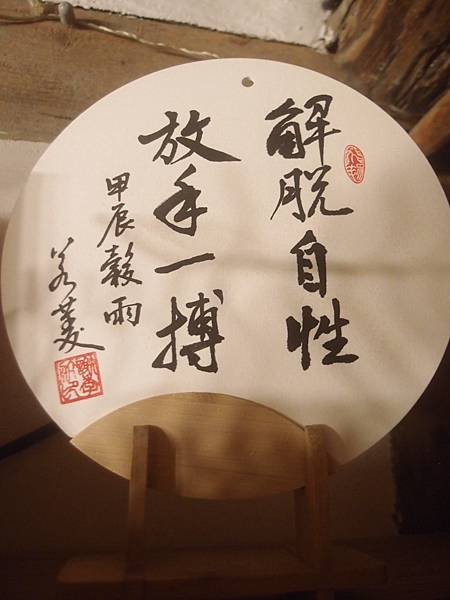 解脱自性
放手一搏
甲辰穀雨
若菱